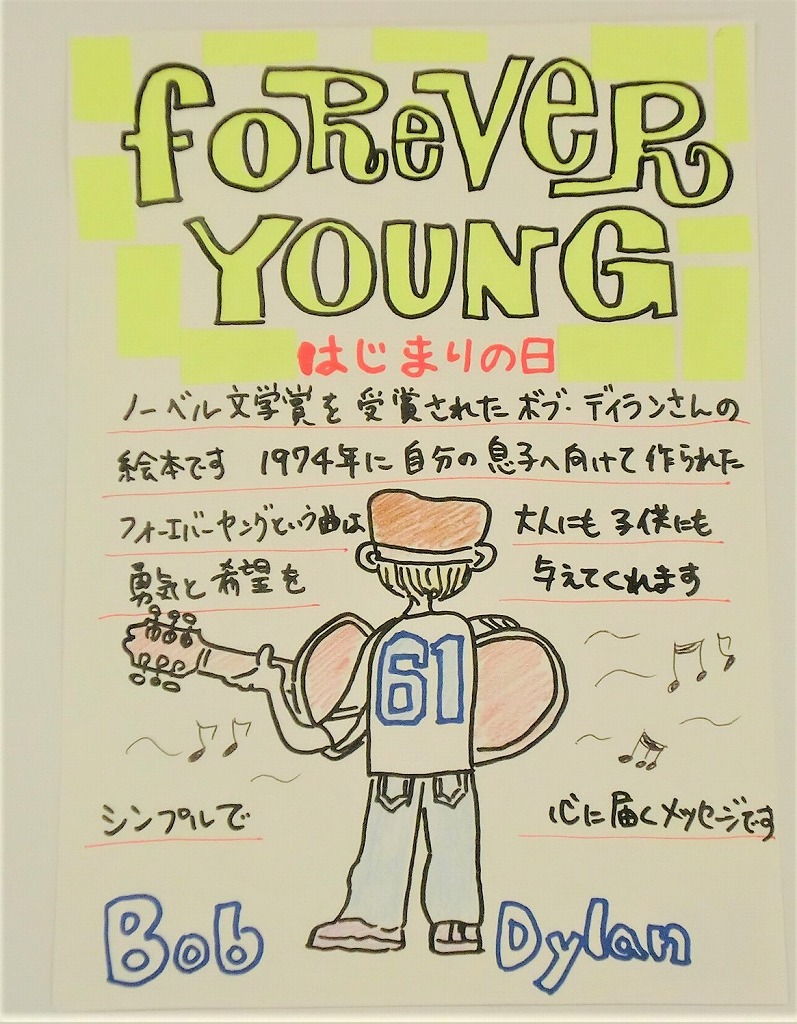 FOREVER
YOUNG
はじまりの日
ノーベル文学賞を受賞されたボブ・ディランさんの
絵本です 1974年に自分の息子へ向けて作られた
フォーエバーヤングという曲は 大人にも子供にも
勇気と希望を 与えてくれます
61
シンプルで 心に届くメッセージです
Bob Dylan